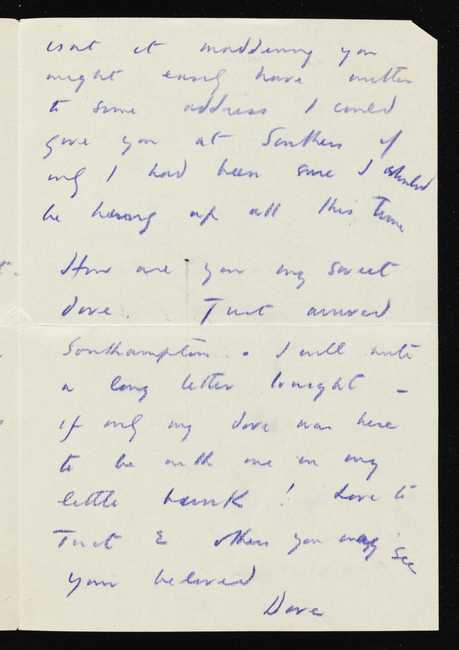 isnt it maddening you
might easily have written
to some address I could
give you at Southern if
only I had been sure I should
be hanging up all this time
How are you my sweet
dove. Just arrived
Southampton. I will write
a long letter tonight –
if only my dove was here
to be with me in my
little bunk! Love to
& others you may see
Your beloved
Dove